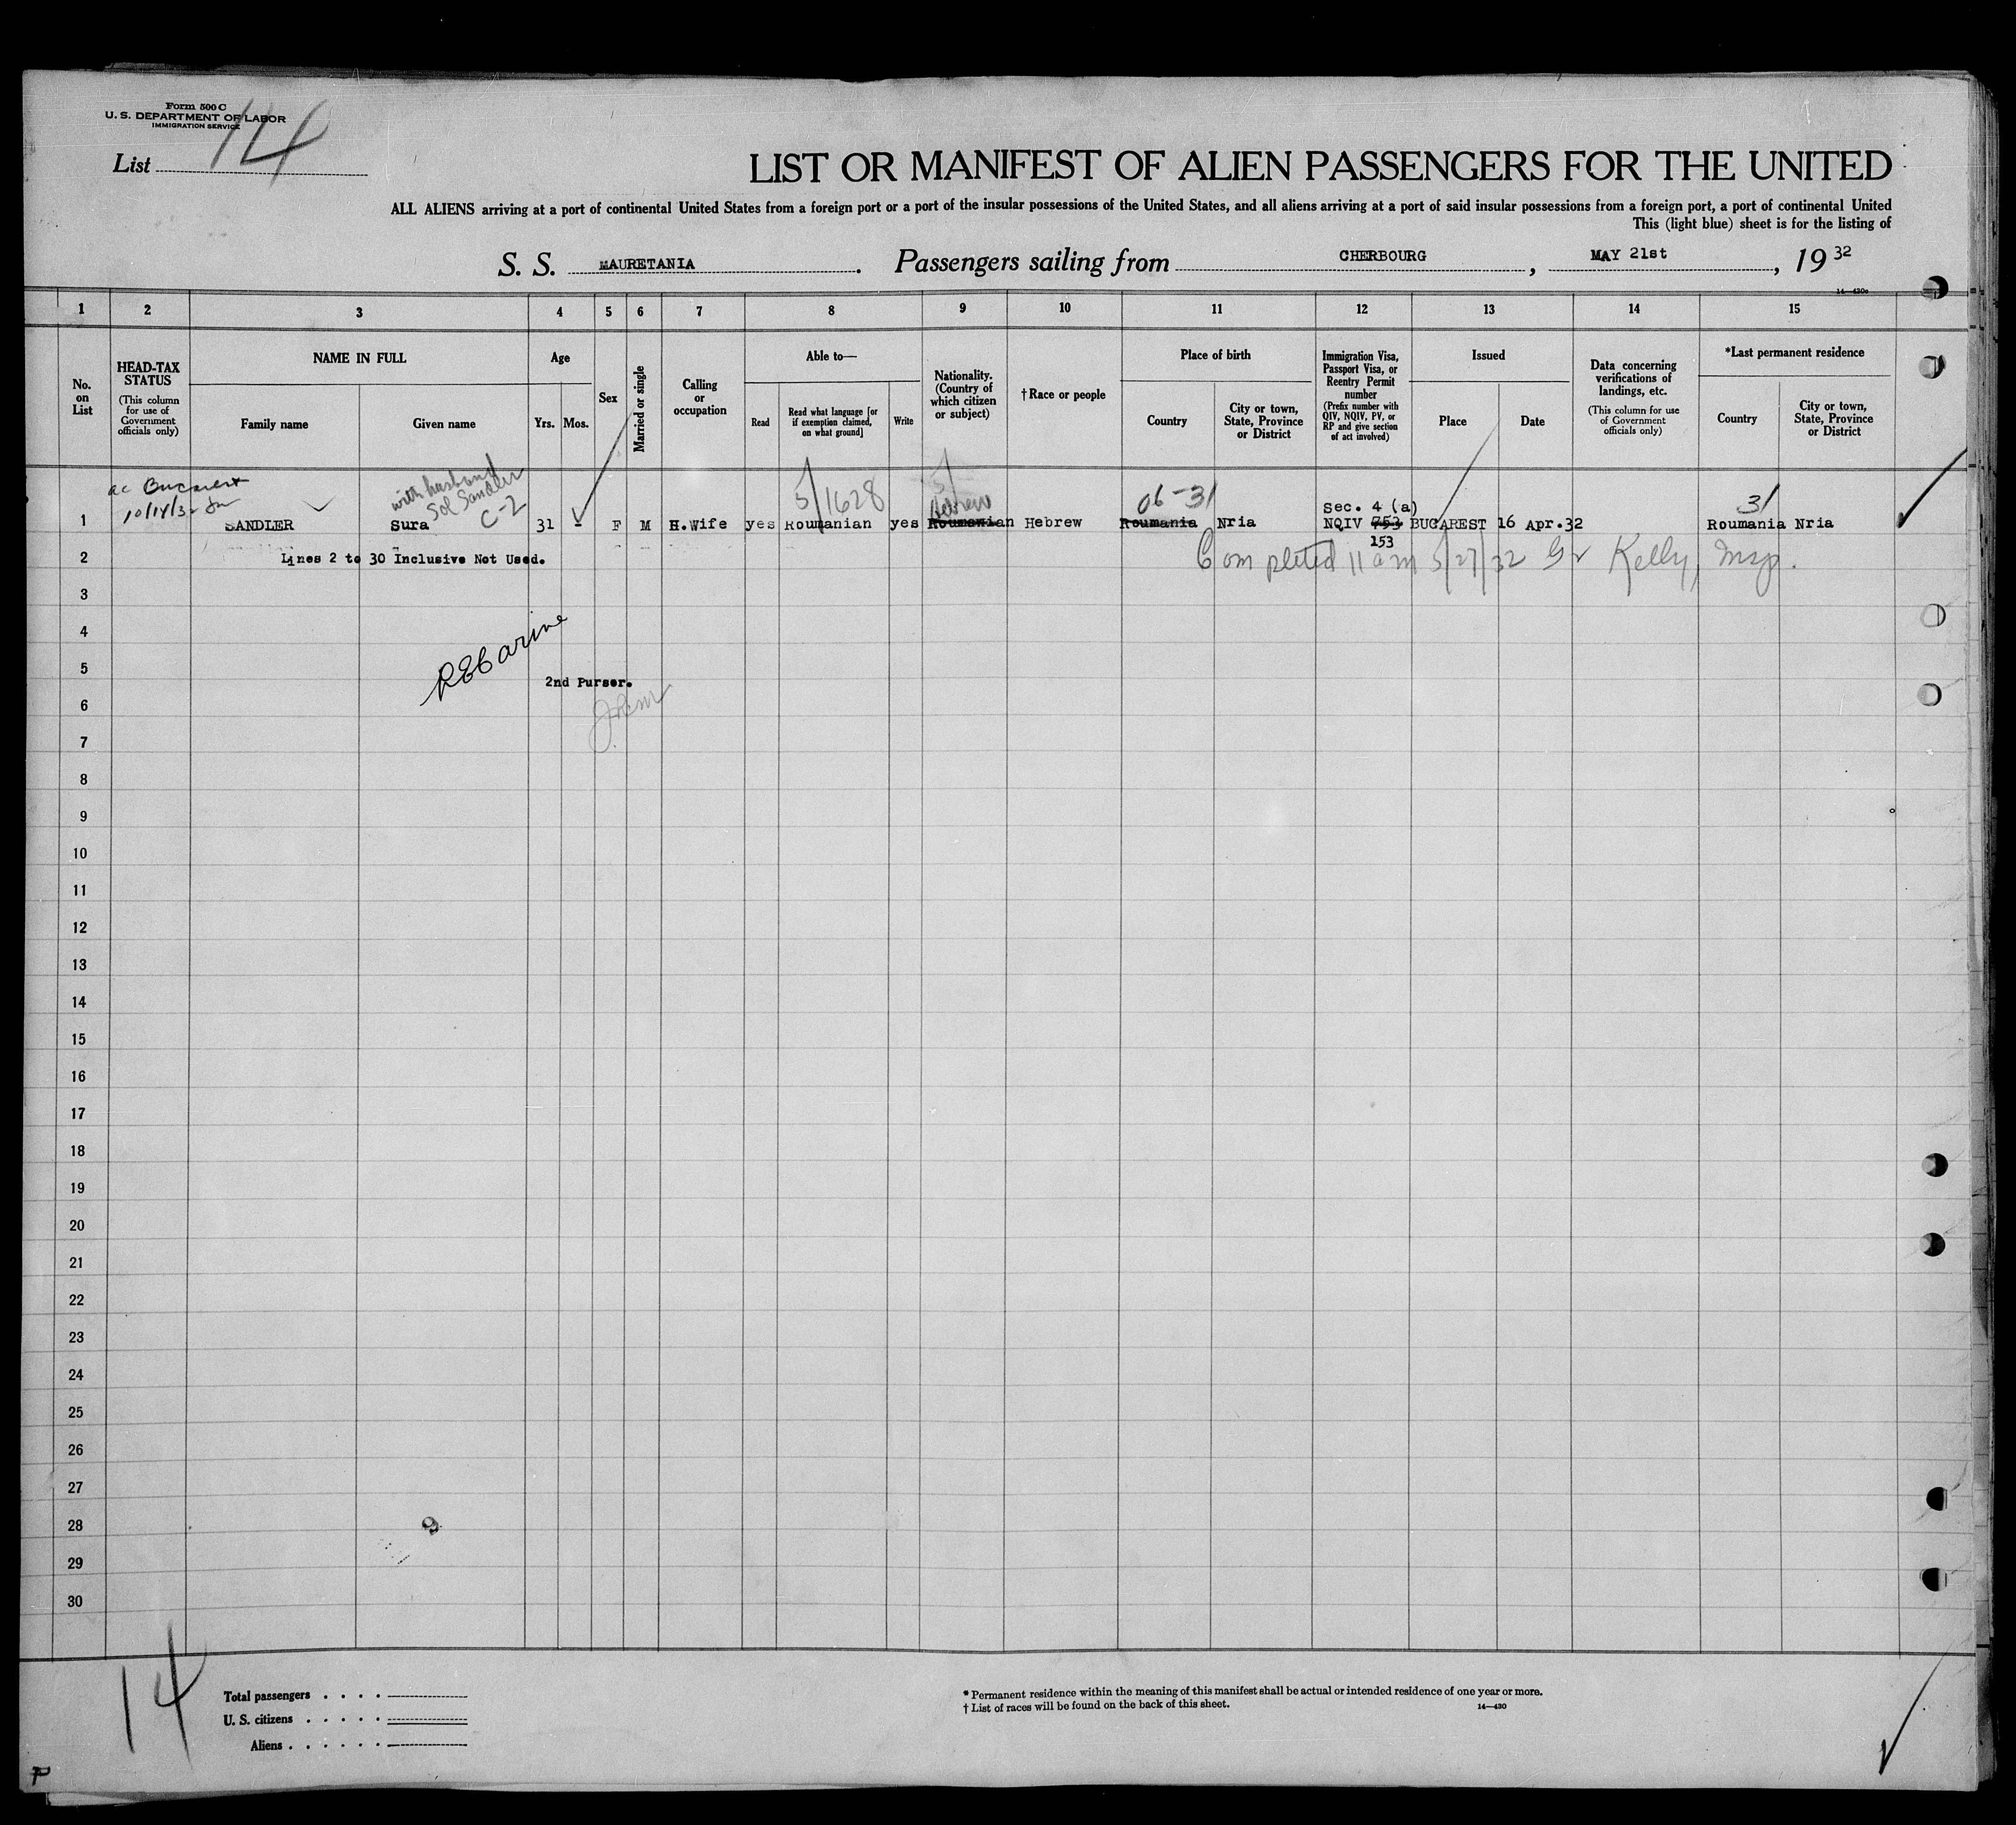 Form 500 C
U. S. DEPARTMENT OF LABOR
IMMIGRATION SERVICE
List 14
LIST OR MANIFEST OF ALIEN PASSENGERS FOR THE UNITED
ALL ALIENS arriving at a port of continental United States from a foreign port or a port of the insular possessions of the United States, and all aliens arriving at a port of said insular possessions from a foreign port, a port of continental United
This (light blue) sheet is for the listing of
S. S. MAURETANIA. Passengers sailing from CHERBOURG, MAY 21st, 19 32
14—430c
1 2 3 4 5 6 7 8 9 10 11 12 13 14 15
No. on List
HEAD-TAX STATUS
(This column for use of Government officials only)
NAME IN FULL
Family name
Given name
Age
Yrs.
Mos.
Sex
Married or single
Calling or occupation
Able to—
Read
Read what language [or if exemption claimed, on what ground]
Write
Nationality. (Country of which citizen or subject)
†Race or people
Place of birth
Country
City or town, State, Province or District
Immigration Visa, Passport Visa, or Reentry Permit number
(Prefix number with QIV, NQIV, PV, or RP and give section of act involved)
Issued
Place
Date
Data concerning verifications of landings, etc.
(This column for use of Government officials only)
*Last permanent residence
Country
City or town, State, Province or District
Bucarest
10/14/32
with husband
Sol Sandler
C-2
5/1628
5/
Hebrew
06-31
31
Sec. 4 (a)
1 SANDLER Sura 31 - F M H.Wife yes Roumanian yes Roumanian Hebrew Roumania Nria NQIV 753 BUCAREST 16 Apr.32 Roumania Nria
153
2 Lines 2 to 30 Inclusive Not Used.
Completed 11 am 5/27/32 Kelly, Insp.
3
4
5
2nd Purser.
6
7
8
9
10
11
12
13
14
15
16
17
18
19
20
21
22
23
24
25
26
27
28
29
30
9
14
Total passengers . . . .
U. S. citizens . . . . .
Aliens . . . . . .
* Permanent residence within the meaning of this manifest shall be actual or intended residence of one year or more.
† List of races will be found on the back of this sheet.
14—430